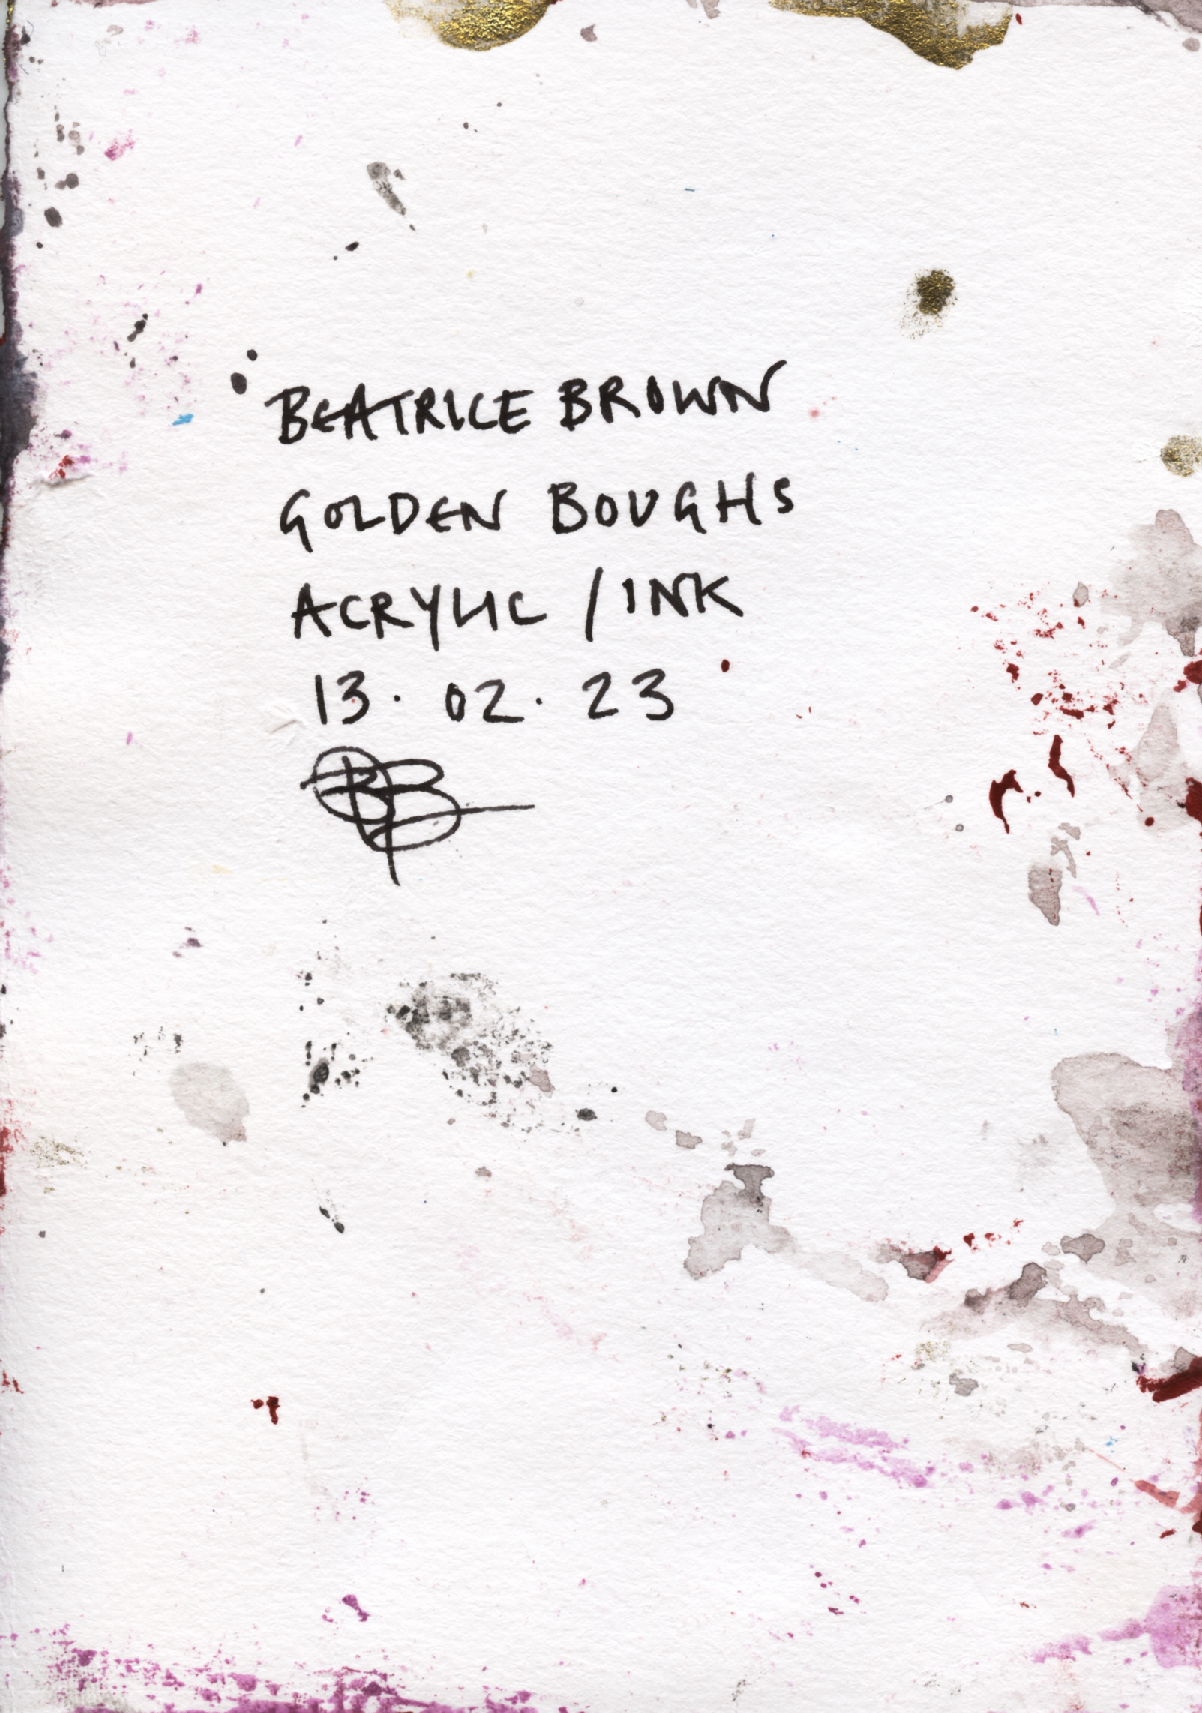 BEATRICE BROWN
GOLDEN BOUGHS
ACRYLIC / INK
13. 02. 23
BB